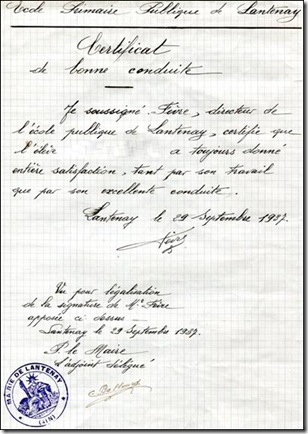 Ecole Primaire Publique de Lantenay
Certificat
de bonne conduite
Je soussigné Fèvre, directeur de
l'école publique de Lantenay, certifie que
l'élève a toujours donné
entière satisfaction, tant par son travail
que par son excellente conduite.
Lantenay le 29 Septembre 1937.
Fèvre
Vu pour légalisation
de la signature de Mr Fèvre
apposée ci dessus
Lantenay le 29 Septembre 1937.
P. le Maire
L'adjoint délégué
MAIRIE DE LANTENAY
(AIN)